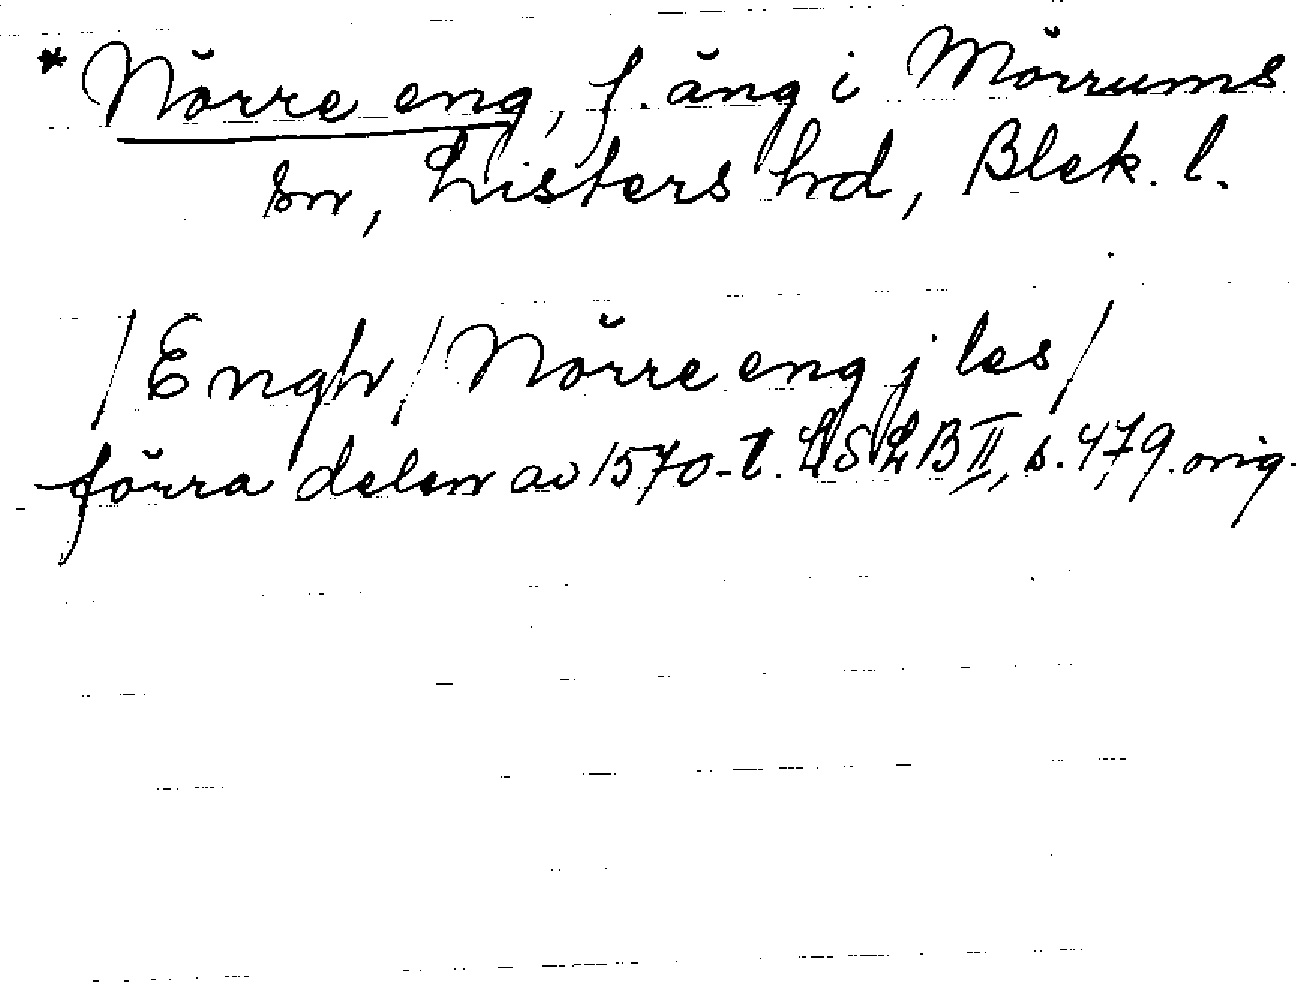 * Nörre eng, f. äng i Mörrums
sn, Listers hd, Blek. l.
/Engh/Nörre eng j les/
förra delen av 1570-t. LSLB II, s. 479. orig.